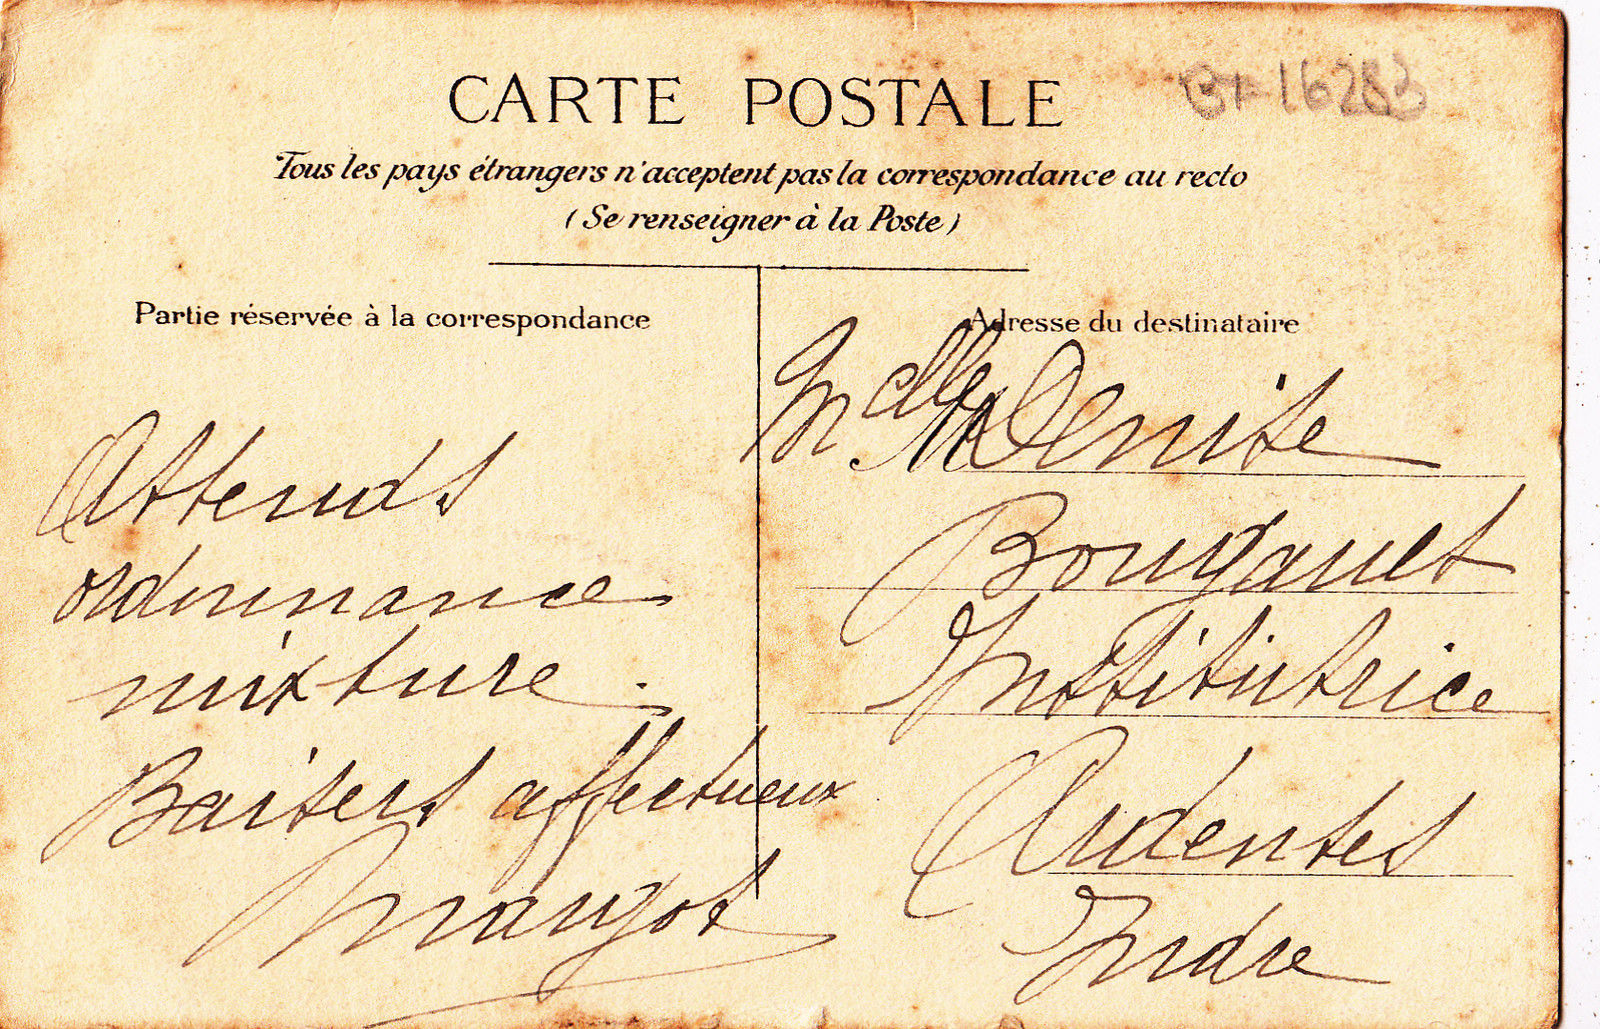 CARTE POSTALE
BF 16283
Tous les pays étrangers n'acceptent pas la correspondance au recto
(Se renseigner à la Poste)
Partie réservée à la correspondance
Attends
ordonnance
mixture.
Baisers affectueux
Margot
Adresse du destinataire
Melle Denise
Institutrice
Ardentes
Indre